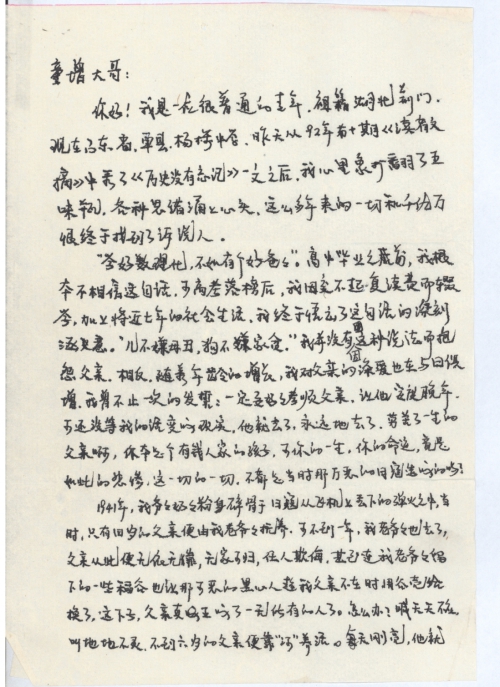 童增大哥：
你好！我是一位很普通的青年，祖籍湖北荆门，
现在山东省、单县、杨楼中学。昨天从92年第十期《读者文
摘》中看了《历史没有忘记》一文之后，我心里象打翻了五
味瓶，各种思绪涌上心头，这么多年来的一切和千仇万
恨终于找到了诉说人。
“学好数理化，不如有个好爸爸”。高中毕业之前，我根
本不相信这句话，可高考落榜后，我因交不起复读费而辍
学，加上将近七年的社会生活，我终于悟出了这句话的深刻
涵意。“儿不嫌母丑，狗不嫌家贫。”我并没有因这种说法而抱
怨父亲。相反，随着年龄的增长，我对父亲的深爱也在与日俱
增。我曾不止一次的发誓：一定要好好孝顺父亲，让他安度晚年。
可还没等我的誓变为现实，他就去了，永远地去了。劳苦了一生的
父亲啊，你本是个有钱人家的孩子，可你的一生，你的命运，竟是
如此的悲惨，这一切的一切，不都是当时那万恶的日寇造成的吗？
1941年，我爷爷奶奶粉身碎骨于日寇从飞机上丢下的弹火之中，当
时，只有四岁的父亲便由我老爷爷抚养。可不到一年，我老爷爷也去了，
父亲从此便无依无靠，无家可归，任人欺侮，甚至连我老爷爷留
下的一些稻谷也被那可恶的黑心人趁我父亲不在时用谷壳给
换了，这下子，父亲真的成了一无所有的人了。怎么办？喊天天不应，
叫地地不灵，不到六岁的父亲便靠“讨”养活。每天刚亮，他就